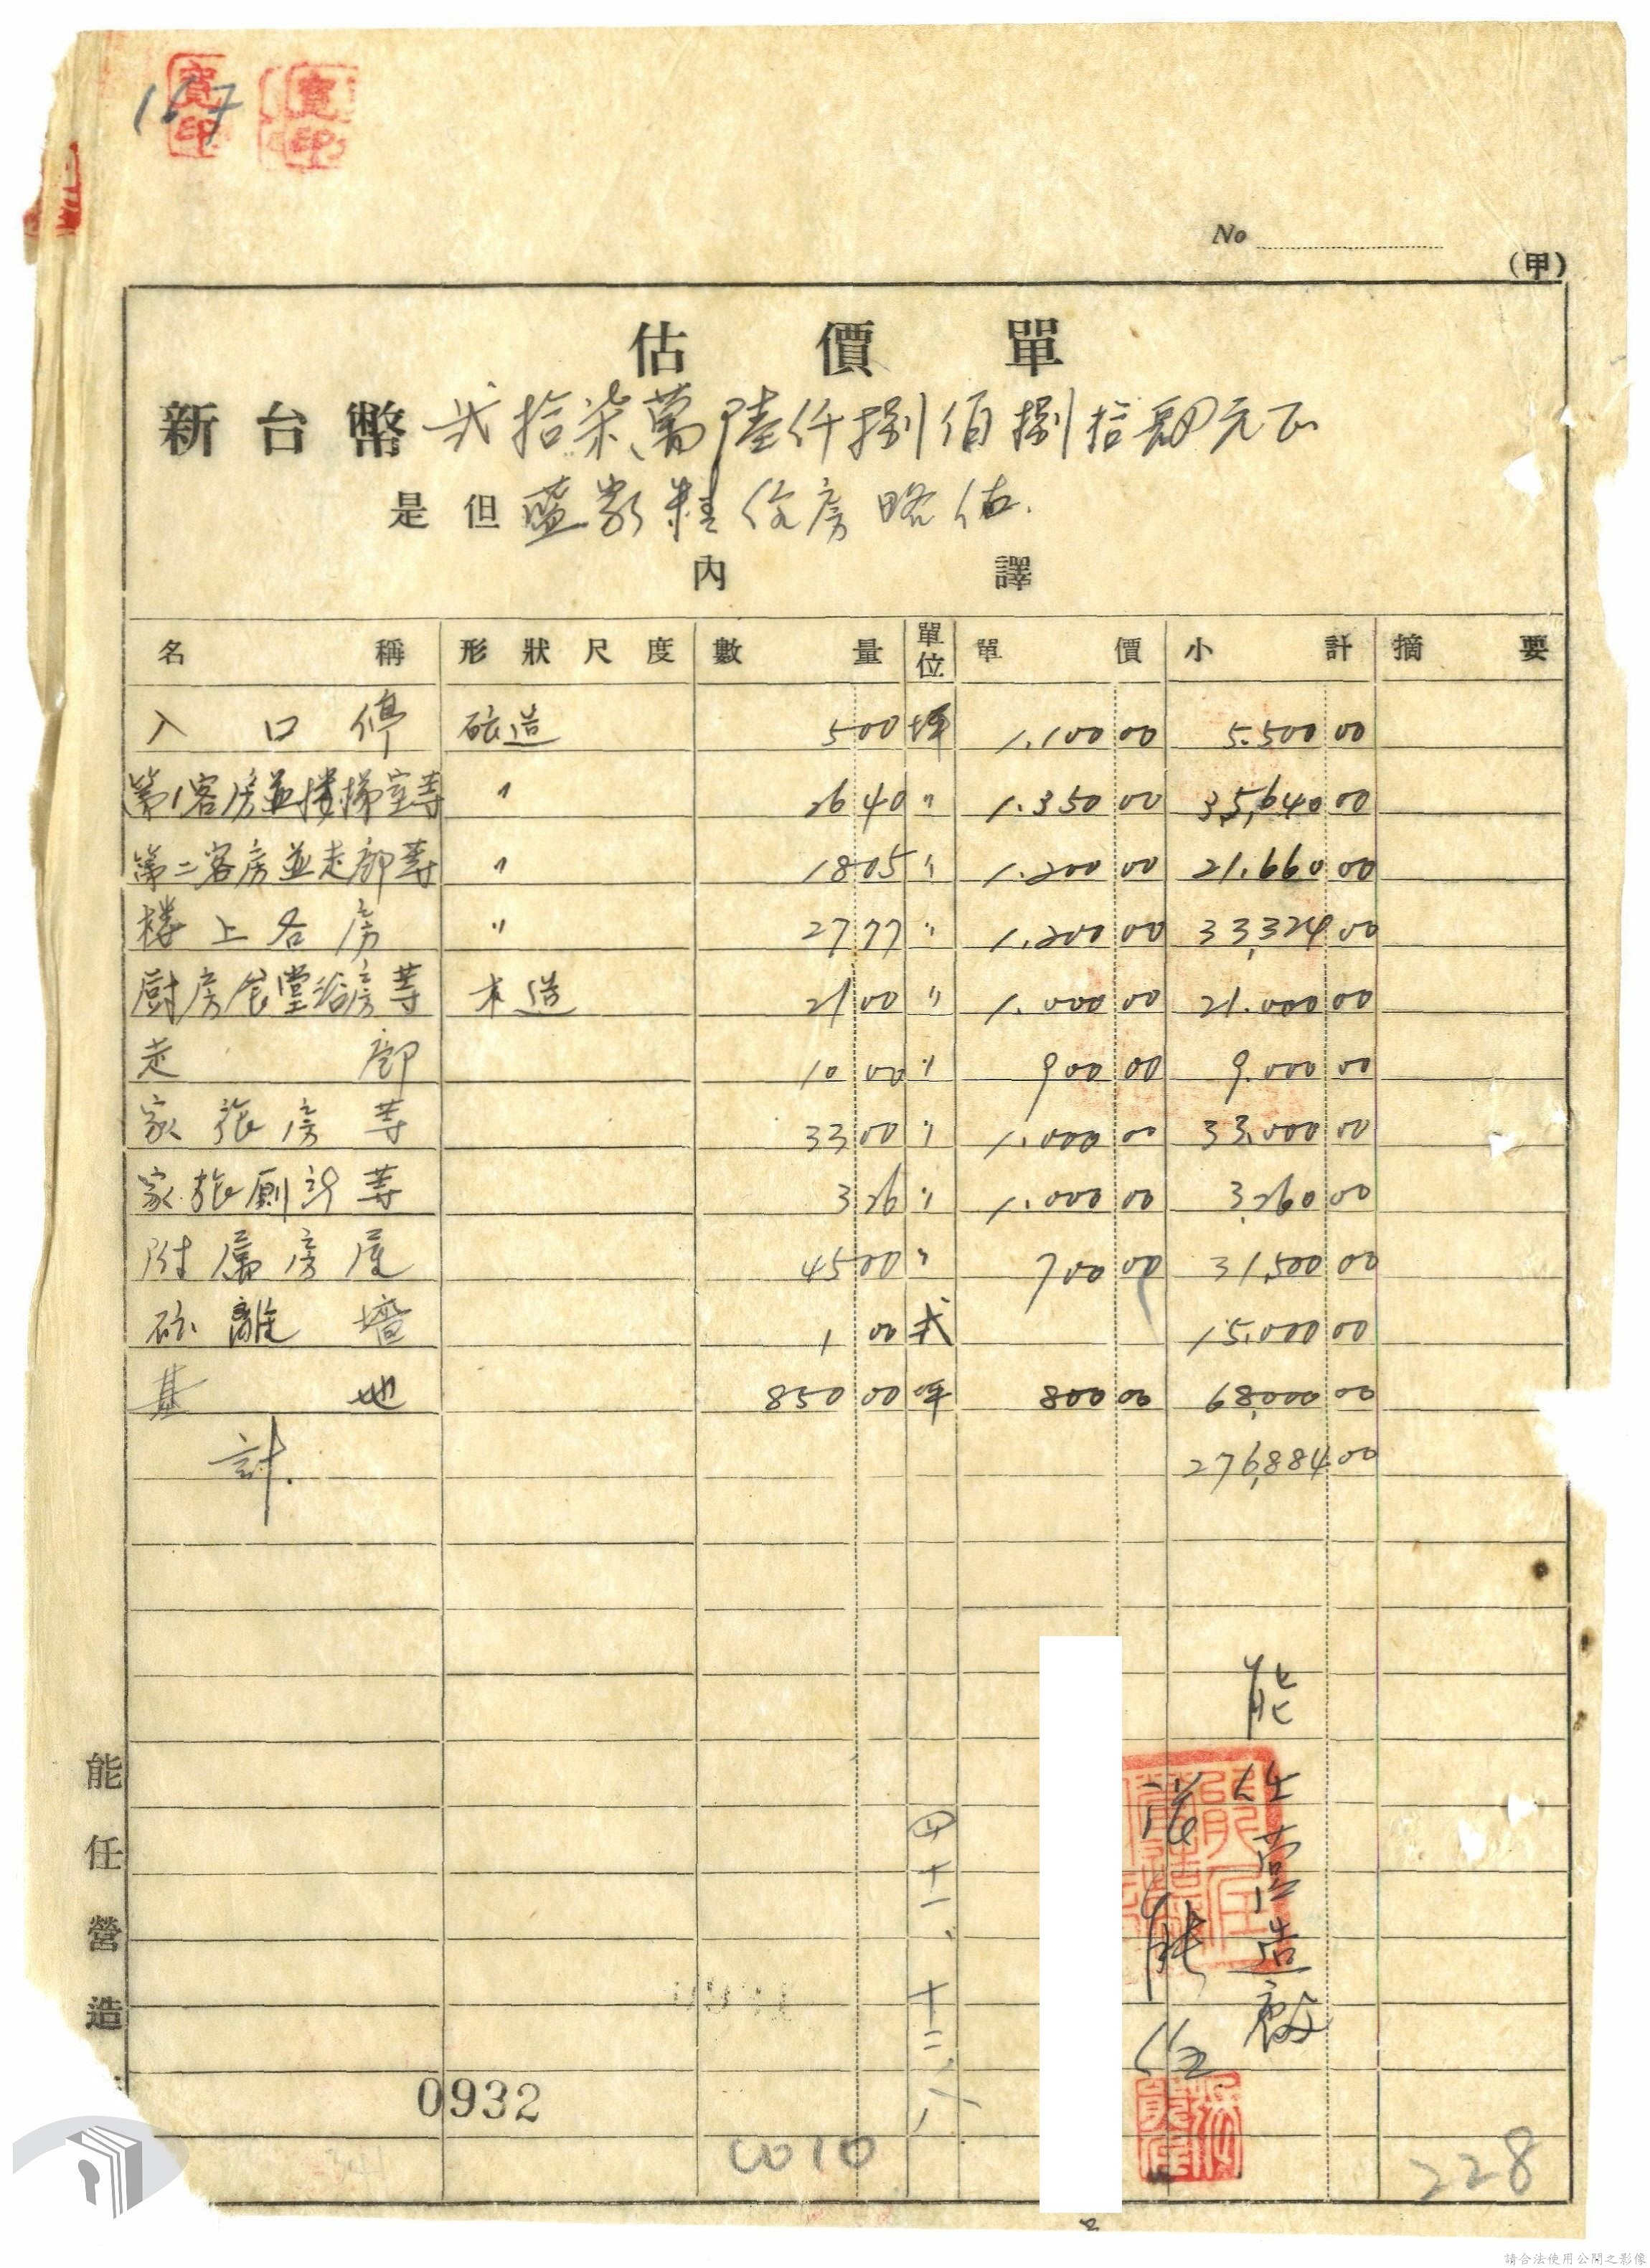 167
寶印 寶印
No
(甲)
估價單
新台幣 弍拾柒萬陸仟捌佰捌拾四元正
是但 蓝敦粦住房略估.
內譯
名稱 形狀尺度 數量 單位 單價 小計 摘要
入口停 砖造 500 坪 1.100 00 5.500 00
第1客房並樓梯室等 〃 26 40 〃 1.350 00 35,640 00
第二客房並走郎等 〃 18 05 〃 1.200 00 21.660 00
楼上各房 〃 27 77 〃 1.200 00 33,324 00
厨房食堂浴房等 木造 21 00 〃 1.000 00 21.000 00
走郎 10 00 〃 900 00 9.000 00
家族房等 33 00 〃 1.000 00 33.000 00
家族厠所等 3 26 〃 1.000 00 3,260 00
附属房屋 45 00 〃 700 00 31,500 00
砖離墻 1 00 式 15.000 00
基地 850 00 坪 800 00 68,000 00
計. 276,884 00
能任營造廠
能任
四十一、十二、八
能任營造
0932
0010
228
請合法使用公開之影像